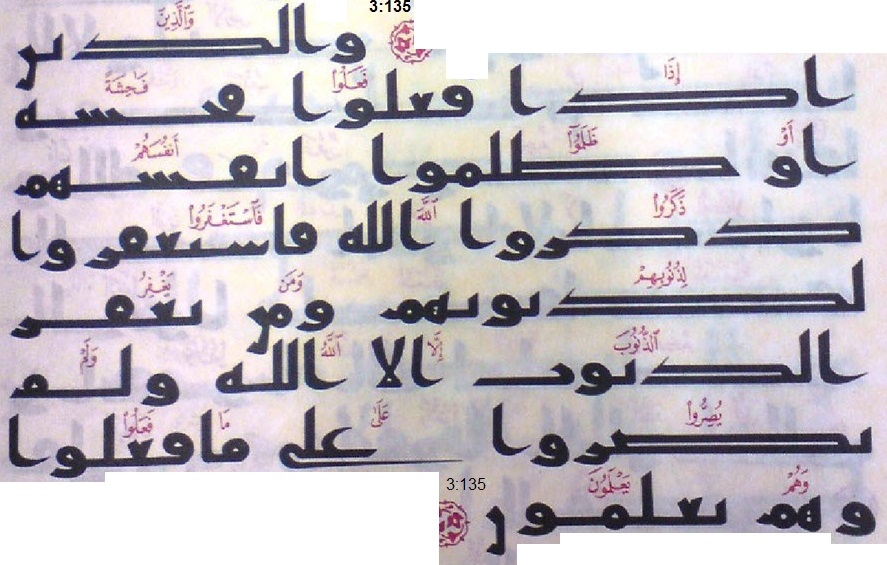 3:135
وَٱلَّذِينَ
والدىں
إِذَا فَعَلُوا۟ فَـٰحِشَةً
ادا ڡعلوا ڡحسه
أَوْ ظَلَمُوٓا۟ أَنفُسَهُمْ
او طلموا اىڡسهم
ذَكَرُوا۟ ٱللَّهَ فَٱسْتَغْفَرُوا۟
دكروا الله ڡاسىعڡروا
لِذُنُوبِهِمْ وَمَن يَغْفِرُ
لدىوىهم ومں ىعڡر
ٱلذُّنُوبَ إِلَّا ٱللَّهُ وَلَمْ
الدىوٮ الا الله ولم
يُصِرُّوا۟ عَلَىٰ مَا فَعَلُوا۟
ىصروا على ما ڡعلوا
3:135
وَهُمْ يَعْلَمُونَ
وهم ىعلموں